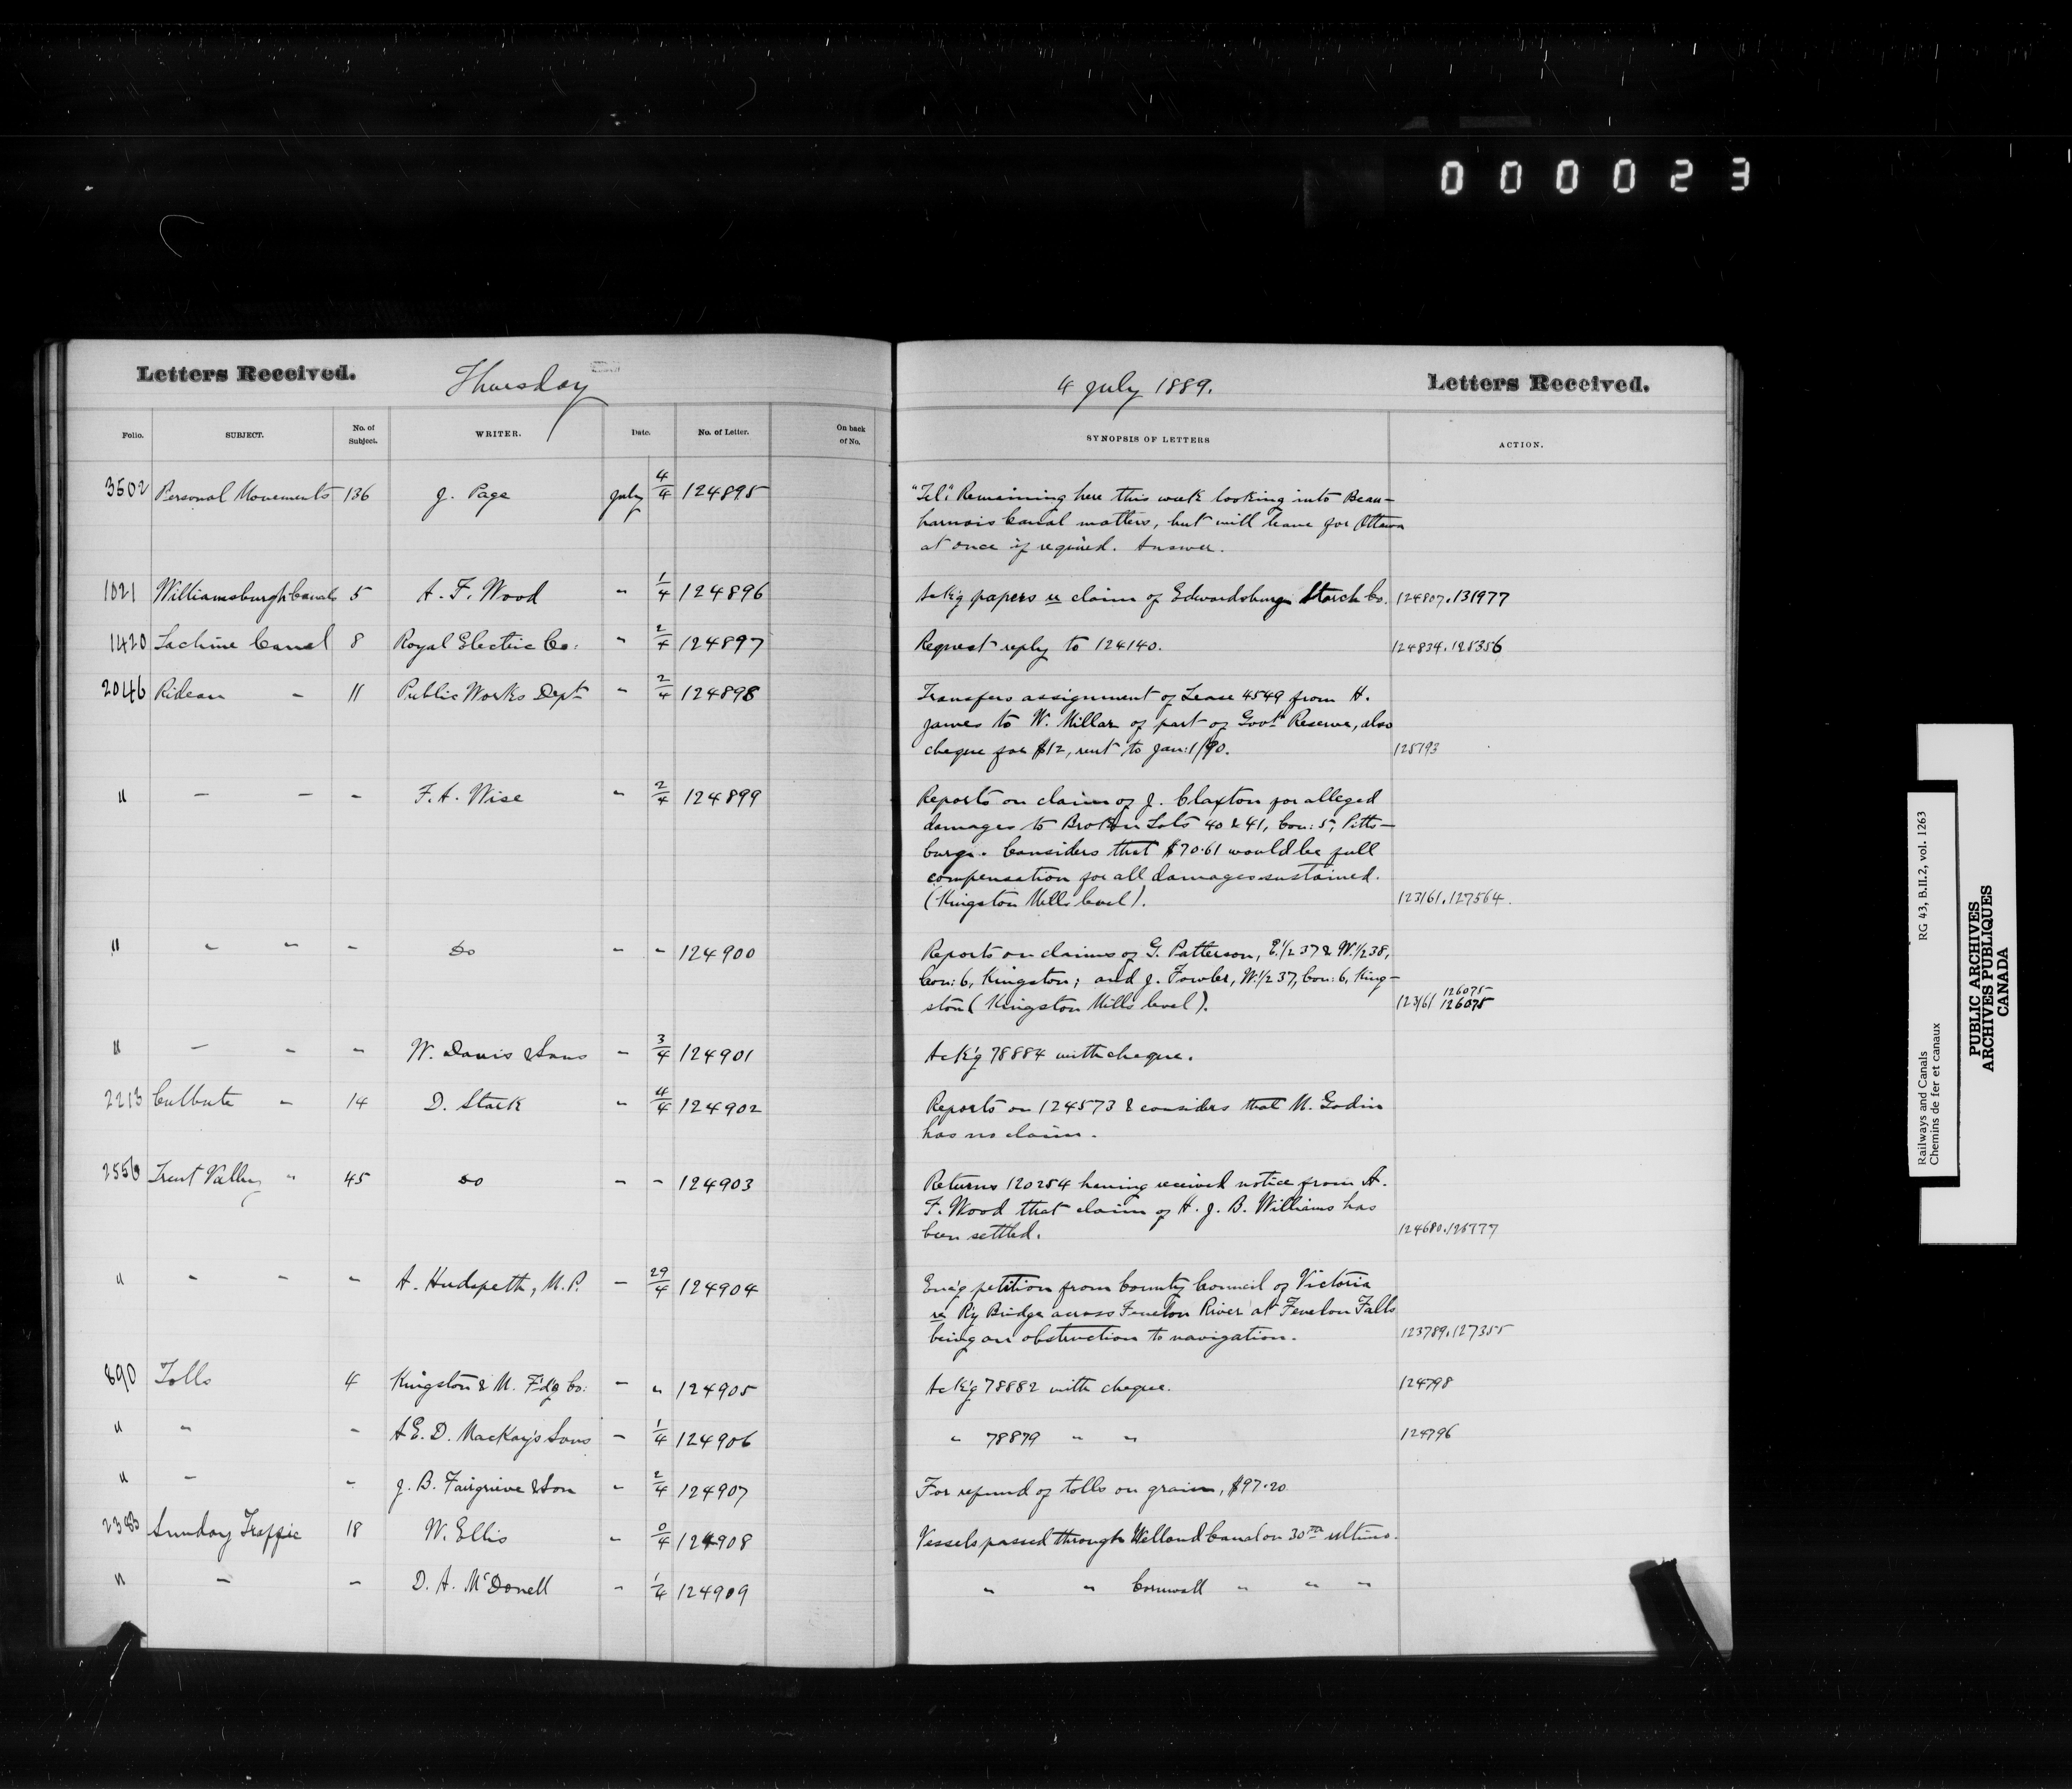 000023
Letters Received. Thursday 4 July 1889. Letters Received.
Folio. SUBJECT. No. of Subject. WRITER. Date. No. of Letter. On back of No. SYNOPSIS OF LETTERS ACTION.
3502 Personal Movements 136 J. Page July 4/4 124895 "Tel." Remaining here this week looking into Beau-
harnois Canal matters, but will leave for Ottawa
at once if required. Answer.
1021 Williamsburgh Canals 5 A. F. Wood " 1/4 124896 Ack'g papers re claim of Edwardsburg Starch Co. 124807. 131977
1420 Lachine Canal 8 Royal Electric Co: " 2/4 124897 Request reply to 124140. 124834. 125356
2046 Rideau " 11 Public Works Dept " 2/4 124898 Transfers assignment of Lease 4549 from H.
James to W. Millar of part of Govt. Reserve, also
cheque for $12, rent to Jan: 1/90. 125793
" " " " F. A. Wise " 2/4 124899 Reports on claim of J. Claxton for alleged
damages to Broken Lots 40 & 41, Con: 5, Pitts-
burg. Considers that $70.61 would be full
compensation for all damages sustained.
(Kingston Mills level). 123161. 127564.
" " " " Do " " 124900 Reports on claims of G. Patterson, E.1/2 37 & W.1/2 38,
Con: 6, Kingston; and J. Fowler, W.1/2 37, Con: 6, King-
126075
ston (Kingston Mills level). 123161 126075
" " " " W. Davis & Sons " 3/4 124901 Ack'g 78884 with cheque.
2213 Culbute " 14 D. Stark " 4/4 124902 Reports on 124573 & considers that M. Godin
has no claim.
2556 Trent Valley " 45 Do " " 124903 Returns 120254 having received notice from A.
F. Wood that claim of H. J. B. Williams has
been settled. 124680. 126777
" " " " A. Hudspeth, M.P. " 29/4 124904 Enc'g petition from County Council of Victoria
re R'y Bridge across Fenelon River at Fenelon Falls
being an obstruction to navigation. 123789. 127355
890 Tolls 4 Kingston & M. F'dg Co: " " 124905 Ack'g 78882 with cheque. 124798
" " " A E. D. MacKay's Sons " 1/4 124906 " 78879 " " 124796
" " " J. B. Fairgrieve & Son " 2/4 124907 For refund of tolls on grain, $97.20
2383 Sunday Traffic 18 W. Ellis " 0/4 124908 Vessels passed through Welland Canal on 30th ultimo.
" " " D. A. McDonell " 1/4 124909 " " Cornwall " " "
RG 43, B.II.2, vol. 1263
Railways and Canals
Chemins de fer et canaux
PUBLIC ARCHIVES
ARCHIVES PUBLIQUES
CANADA